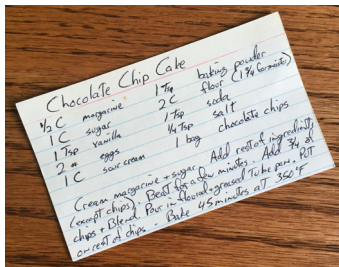 Chocolate Chip Cake
1/2 C margarine
1 C sugar
1 Tsp vanilla
2 eggs
1 C sour cream
1 Tsp baking powder
2 C flour (1 3/4 for minis)
1 Tsp soda
1/4 Tsp salt
1 bag chocolate chips
Cream margarine + sugar. Add rest of ingredients
(except chips). Beat for a few minutes. Add 3/4 of
chips + Blend. Pour in floured + greased Tube pan. PUT
on rest of chips. Bake 45 minutes at 350°F